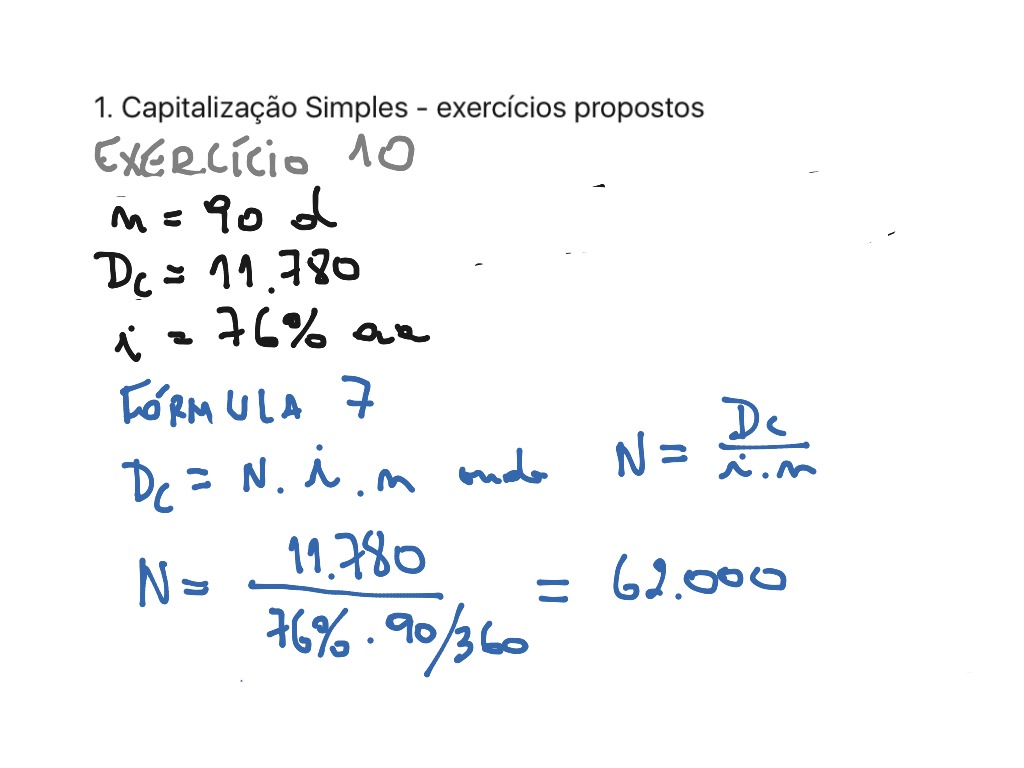 1. Capitalização Simples - exercícios propostos
EXERCÍCIO 10
n = 90 d
Dc = 11.780
i = 76% aa
FÓRMULA 7
Dc = N . i . n onde N = Dc / i . n
N = 11.780 / 76% . 90/360 = 62.000